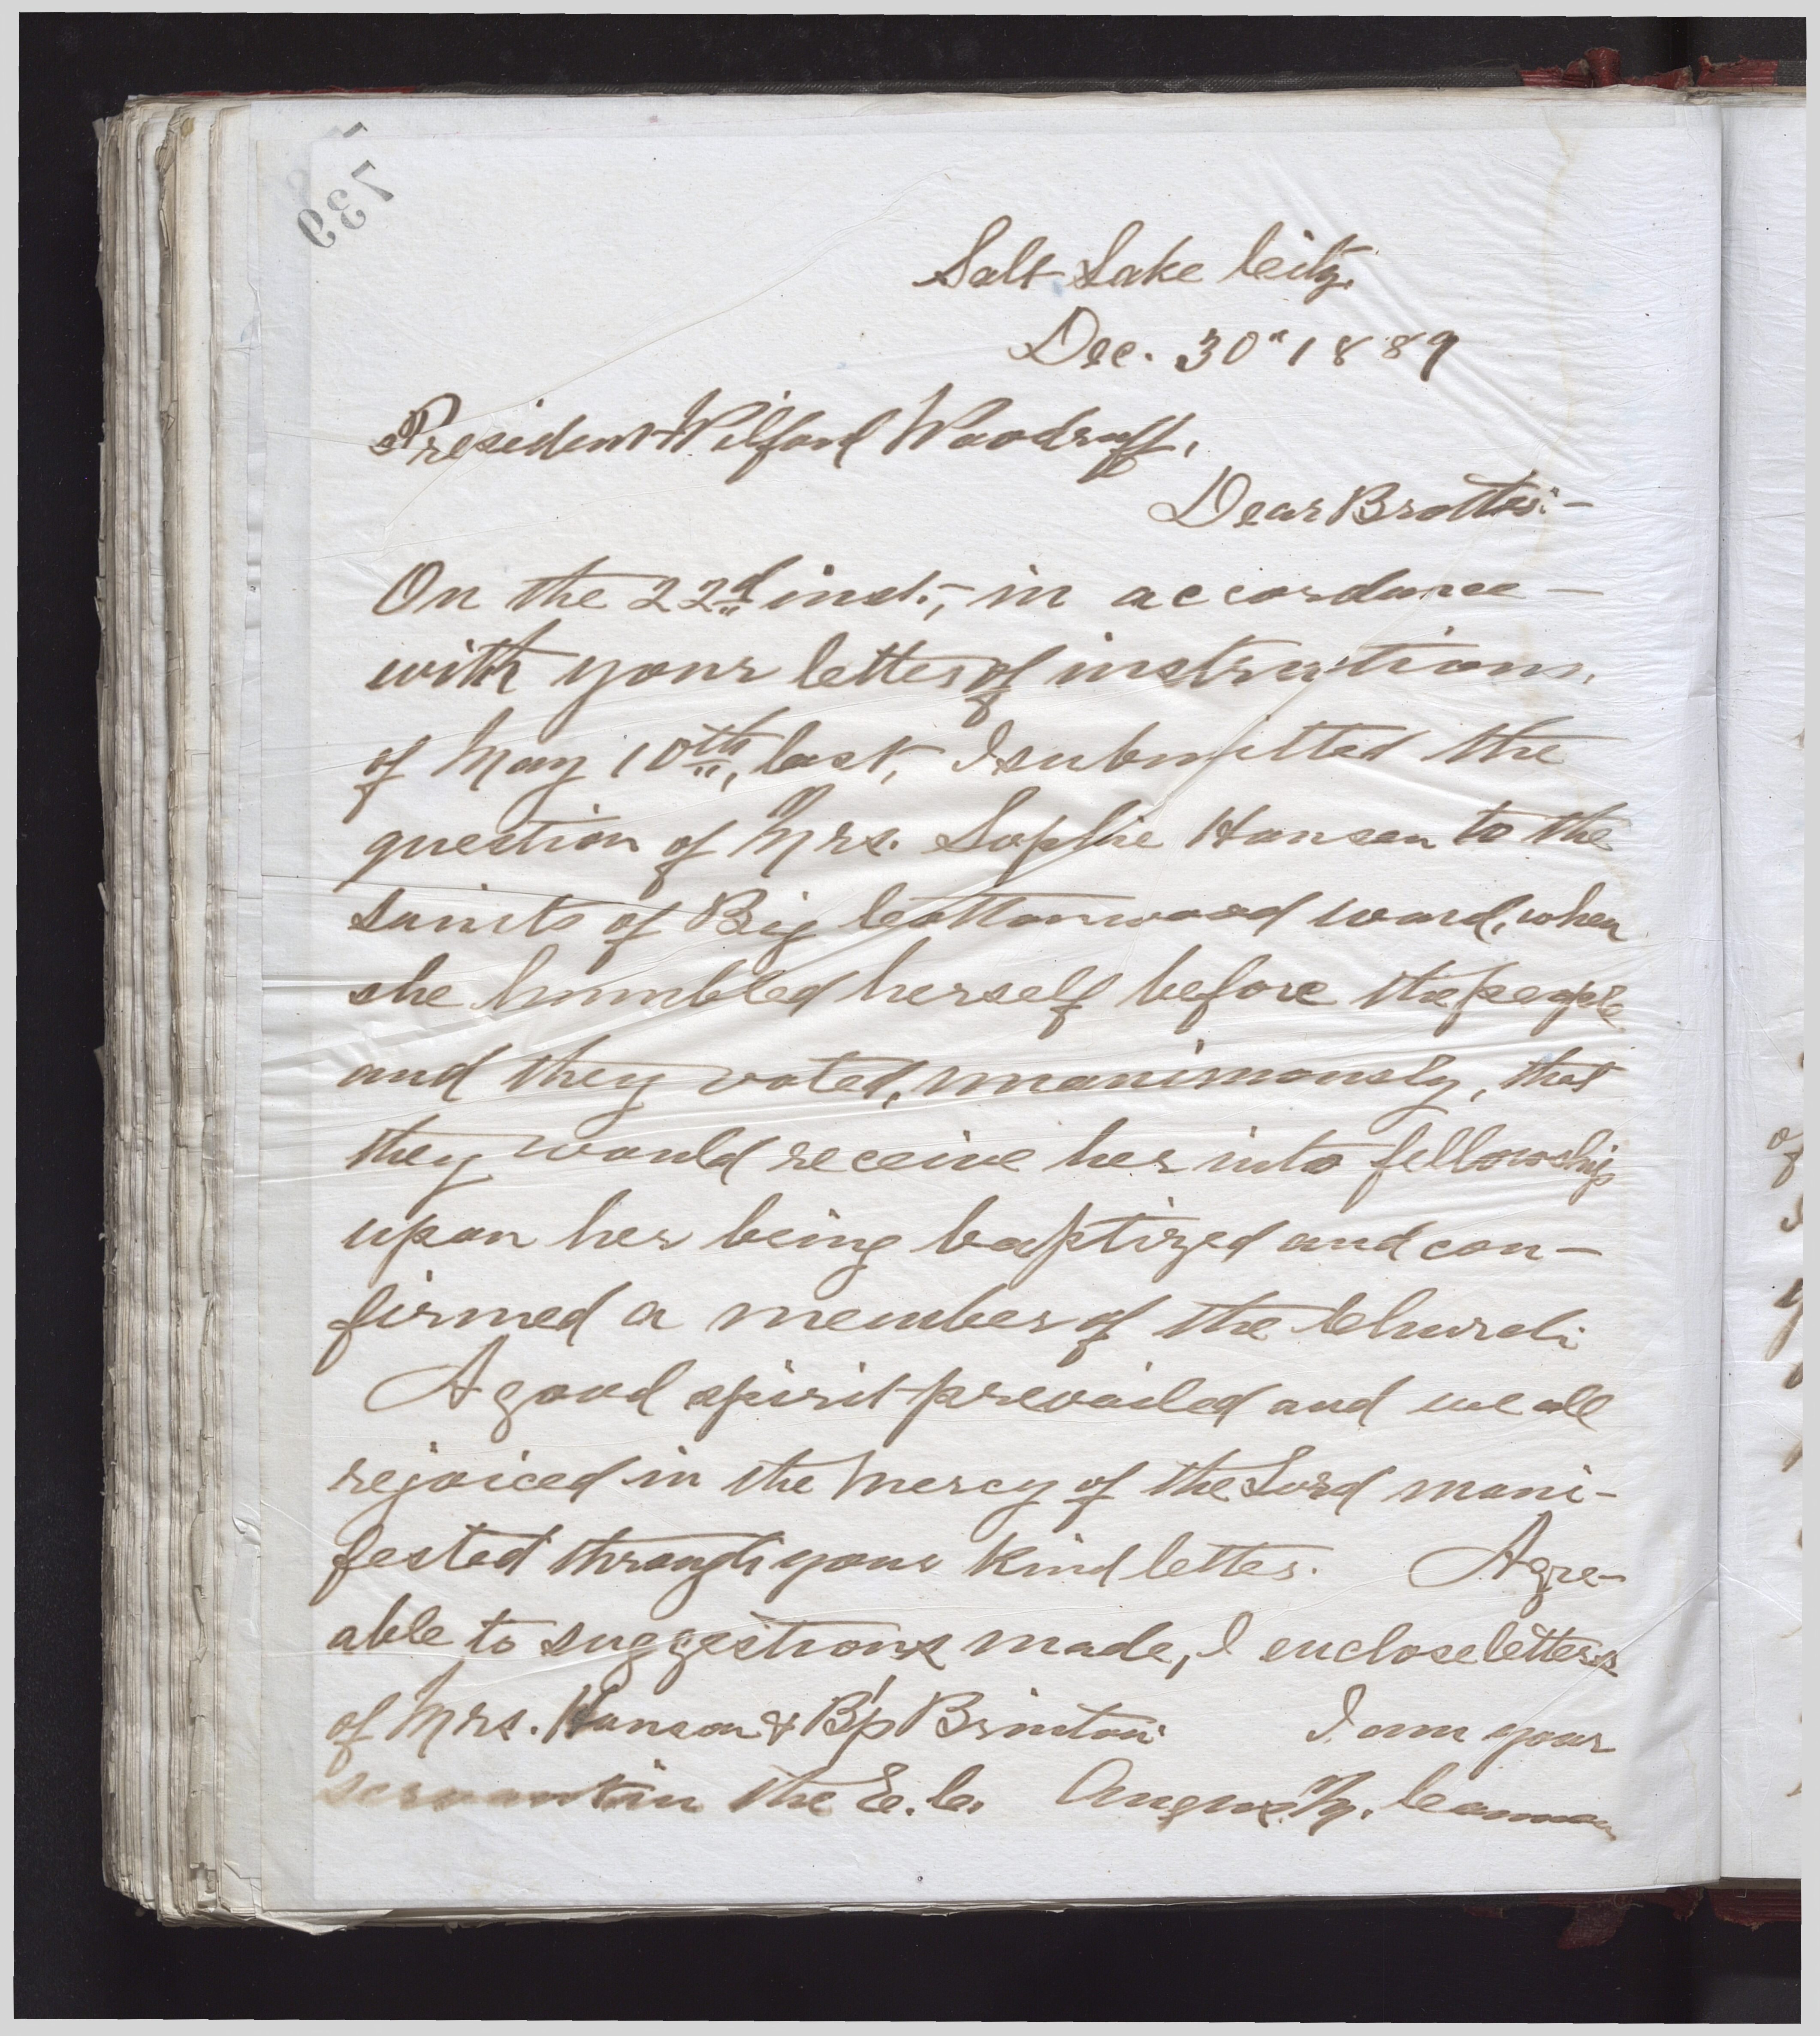 739
Salt Lake City,
Dec. 30" 1889
President Wilford Woodruff,
Dear Brother:—
On the 22nd inst., in accordance —
with your letter of instructions,
of May 10th, last, I submitted the
question of Mrs. Sophie Hansen to the
saints of Big Cottonwood ward, when
she humbled herself before the people
and they voted, unanimously, that
they would receive her into fellowship
upon her being baptized and con-
firmed a member of the Church.
A good spirit prevailed and we all
rejoiced in the mercy of the Lord mani-
fested through your kind letter. Agre-
able to suggestions made, I enclose letters
of Mrs. Hanson & B'p Brinton. I am your
servant in the E. C. Angus M. Cannon